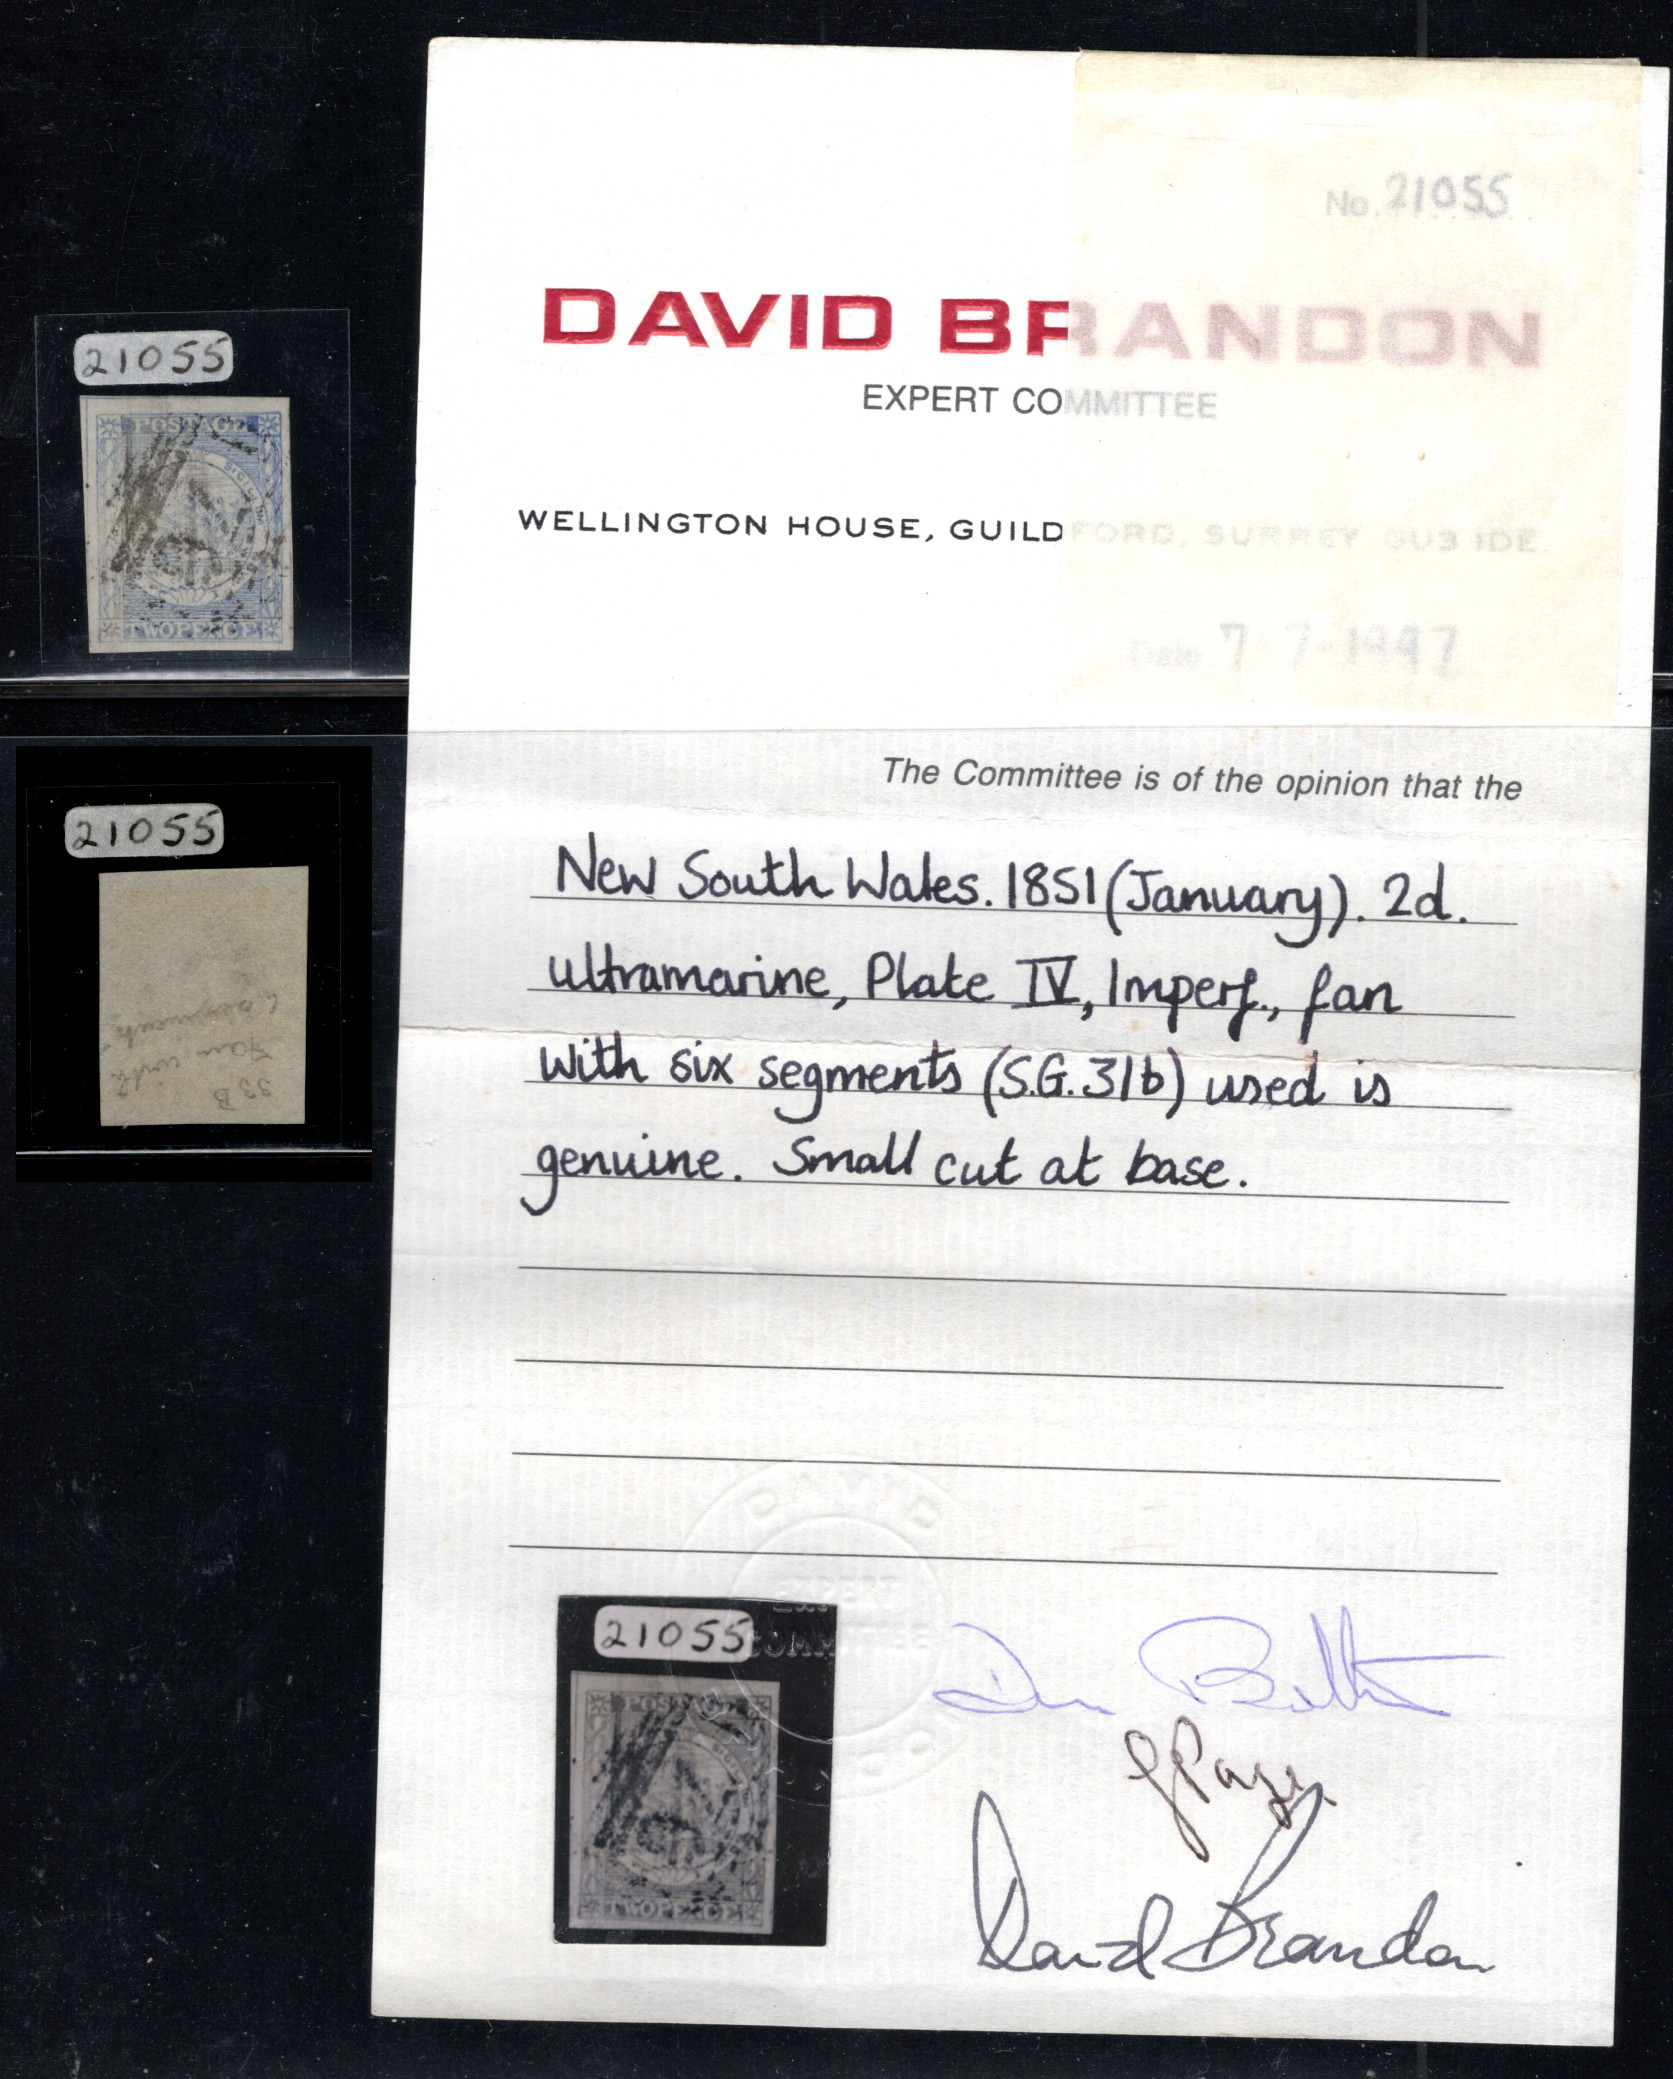 No. 21055
DAVID BRANDON
EXPERT COMMITTEE
WELLINGTON HOUSE, GUILDFORD, SURREY GU3 1DE.
Date 7-7-1997
The Committee is of the opinion that the
New South Wales. 1851 (January). 2d.
ultramarine, Plate IV, Imperf., fan
with six segments (S.G.31b) used is
genuine. Small cut at base.
DAVID
EXPERT
COMMITTEE
21055
POSTAGE
TWOPENCE
David Brandon
21055
POSTAGE
SIGILLUM
TWOPENCE
21055
6 segments
Fan with
33B